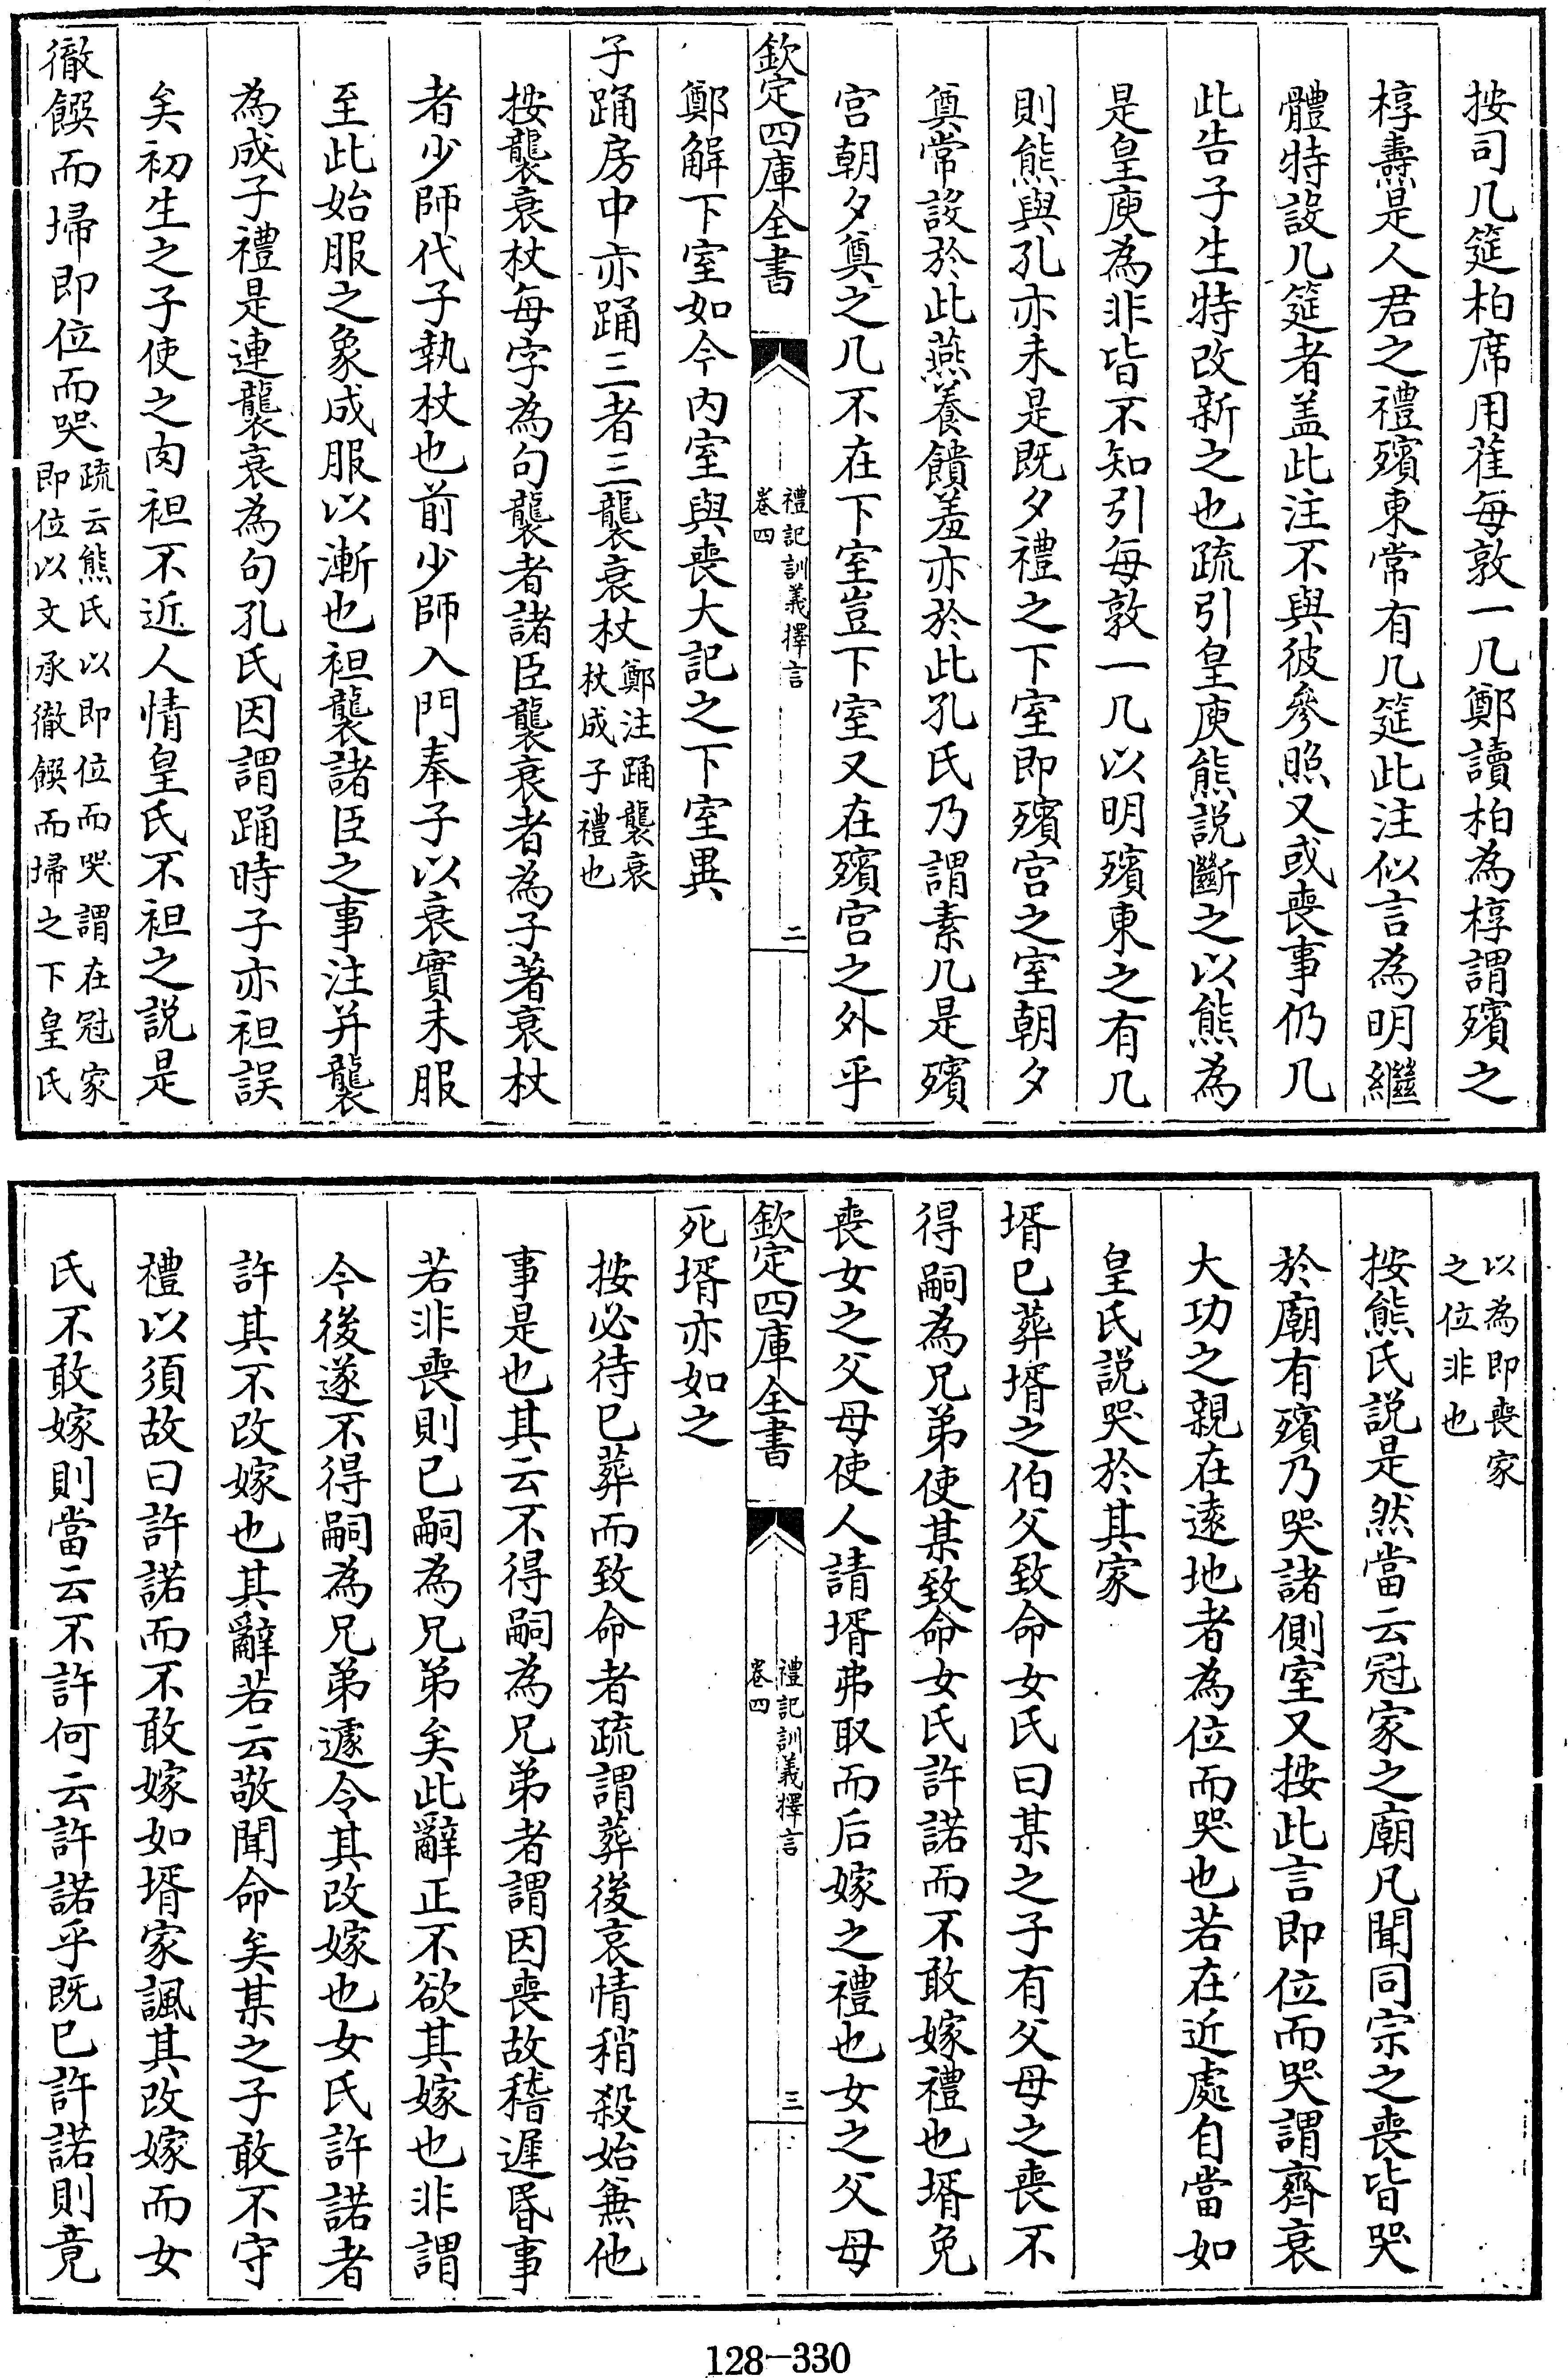 按司几筵柏席用萑每敦一几鄭讀柏為椁謂殯之
椁燾是人君之禮殯東常有几筵此注似言為明繼
體特設几筵者盖此注不與彼參照又或喪事仍几
此告子生特改新之也疏引皇庾熊説斷之以熊為
是皇庾為非皆不知引每敦一几以明殯東之有几
則熊與孔亦未是既夕禮之下室即殯宫之室朝夕
奠常設於此燕養饋羞亦於此孔氏乃謂素几是殯
宫朝夕奠之几不在下室豈下室又在殯宫之外乎
欽定四庫全書
禮記訓義擇言
卷四
二
鄭解下室如今内室與喪大記之下室異
子踊房中亦踊三者三襲衰杖鄭注踊襲衰
杖成子禮也
按襲衰杖每字為句襲者諸臣襲衰者為子著衰杖
者少師代子執杖也前少師入門奉子以衰實未服
至此始服之象成服以漸也袒襲諸臣之事注并襲
為成子禮是連襲衰為句孔氏因謂踊時子亦袒誤
矣初生之子使之肉袒不近人情皇氏不袒之説是
徹饌而埽即位而哭疏云熊氏以即位而哭謂在冠家
即位以文承徹饌而埽之下皇氏
以為即喪家
之位非也
按熊氏説是然當云冠家之廟凡聞同宗之喪皆哭
於廟有殯乃哭諸側室又按此言即位而哭謂齊衰
大功之親在逺地者為位而哭也若在近處自當如
皇氏説哭於其家
壻已葬壻之伯父致命女氏曰某之子有父母之喪不
得嗣為兄弟使某致命女氏許諾而不敢嫁禮也壻免
喪女之父母使人請壻弗取而后嫁之禮也女之父母
欽定四庫全書
禮記訓義擇言
卷四
三
死壻亦如之
按必待已葬而致命者疏謂葬後哀情稍殺始兼他
事是也其云不得嗣為兄弟者謂因喪故稽遲昏事
若非喪則已嗣為兄弟矣此辭正不欲其嫁也非謂
今後遂不得嗣為兄弟遽令其改嫁也女氏許諾者
許其不改嫁也其辭若云敬聞命矣某之子敢不守
禮以須故曰許諾而不敢嫁如壻家諷其改嫁而女
氏不敢嫁則當云不許何云許諾乎既已許諾則竟
128-330